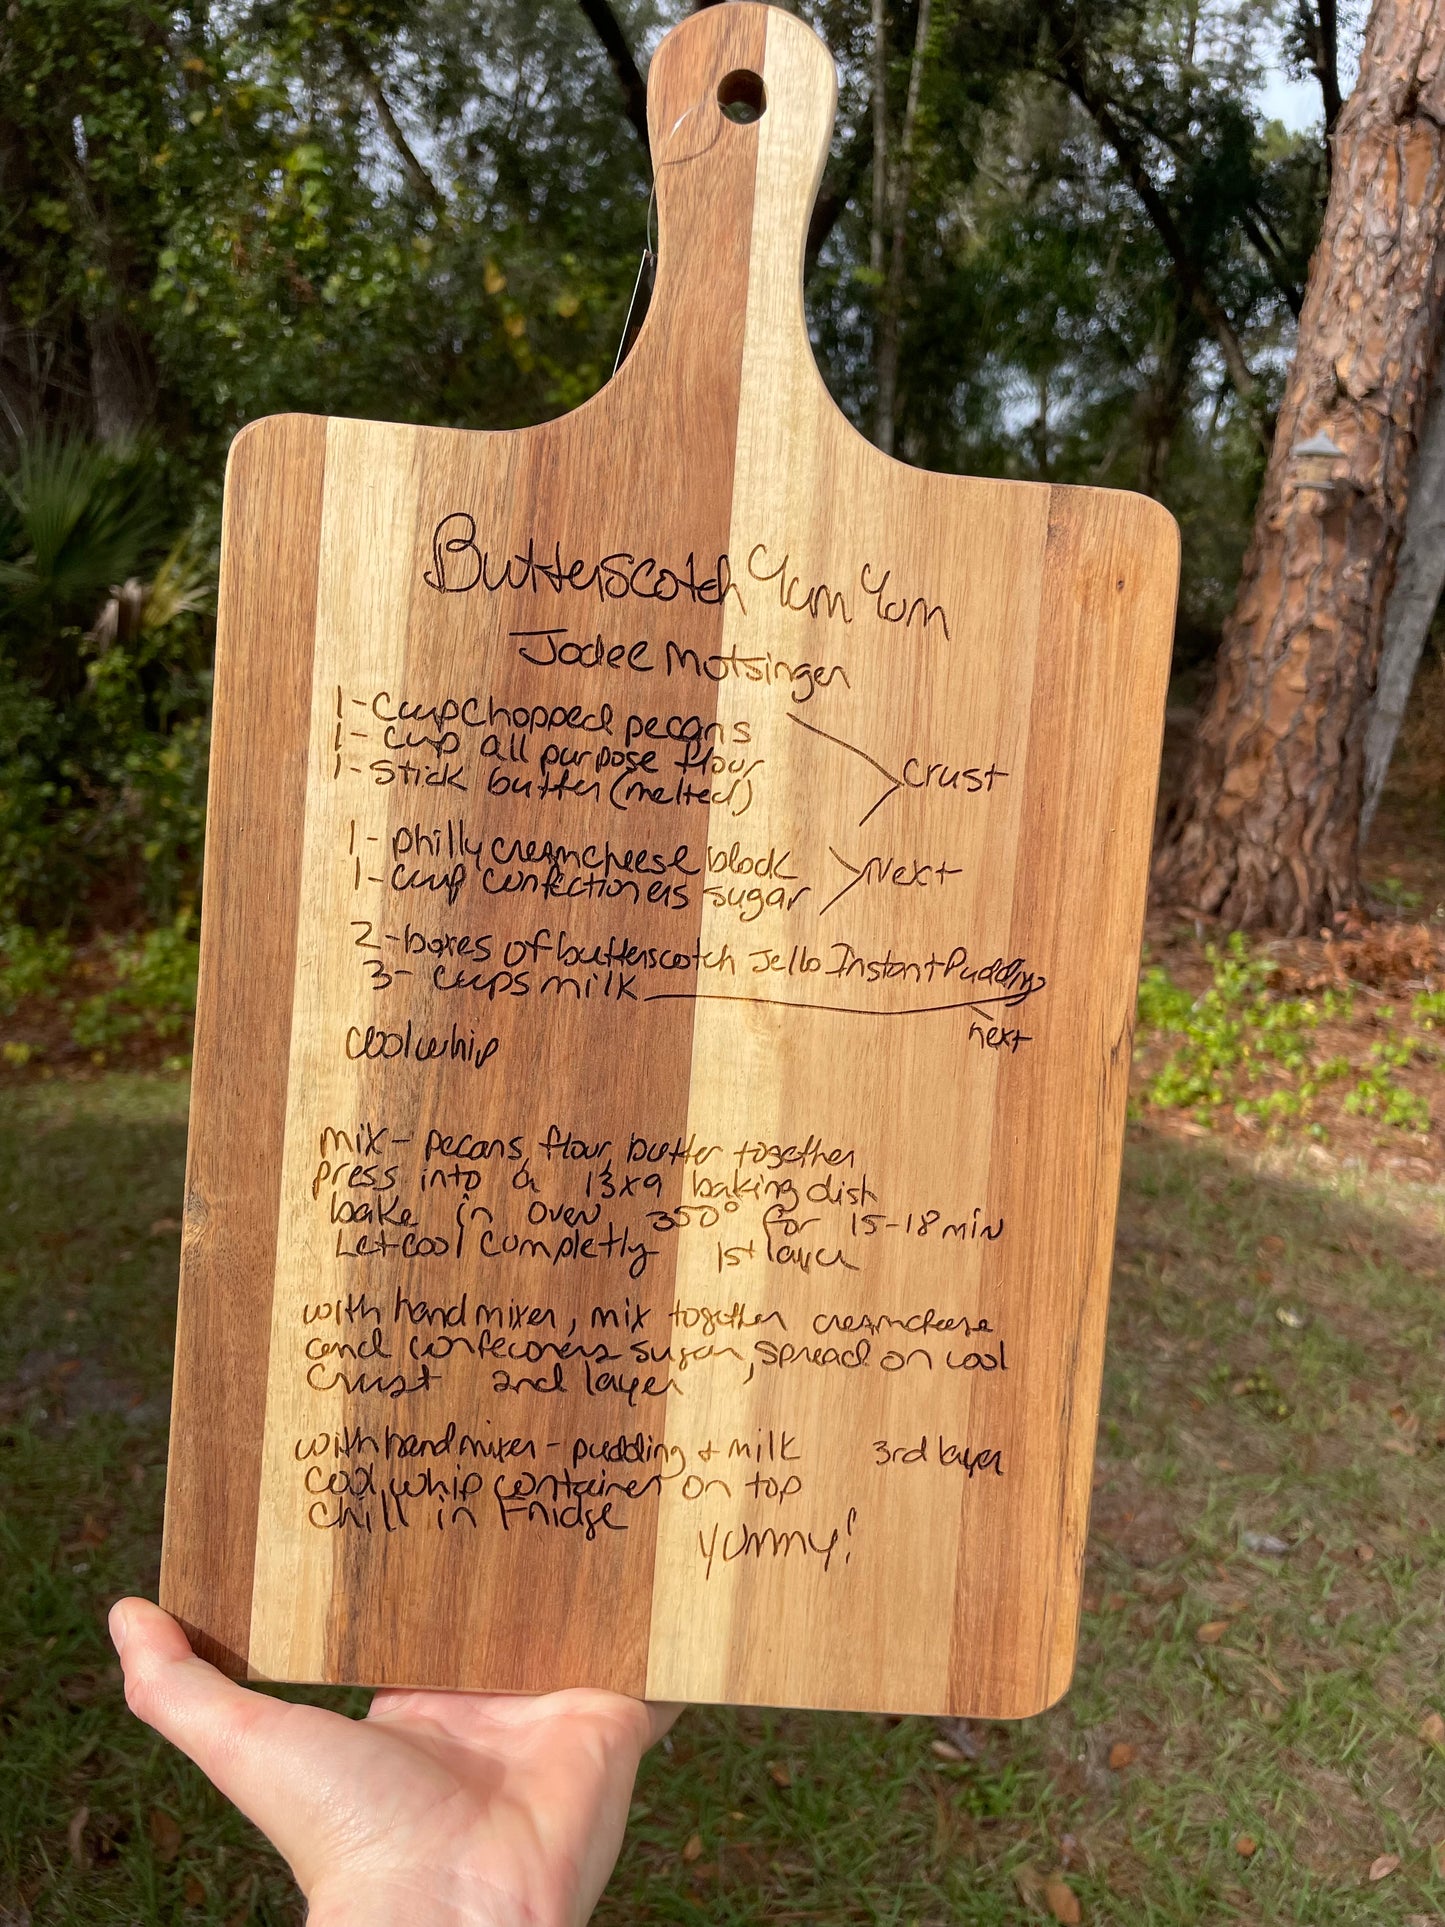 Butterscotch Yum Yum
Jodee Motsinger
1-Cup Chopped pecans
1-Cup all purpose flour
1-Stick butter (melted)
Crust
1-Philly creamcheese block
1-cup confectioners sugar
Next
2-boxes of butterscotch Jello Instant Pudding
3-cups milk
next
coolwhip
mix-pecans, flour, butter together
press into a 13x9 baking dish
bake in oven 350° for 15-18 min
Let cool completly 1st layer
with hand mixer, mix together creamcheese
and confeconers sugar, spread on cool
Crust 2nd layer
with hand mixer - pudding + milk 3rd layer
cool whip container on top
Chill in Fridge
yummy!